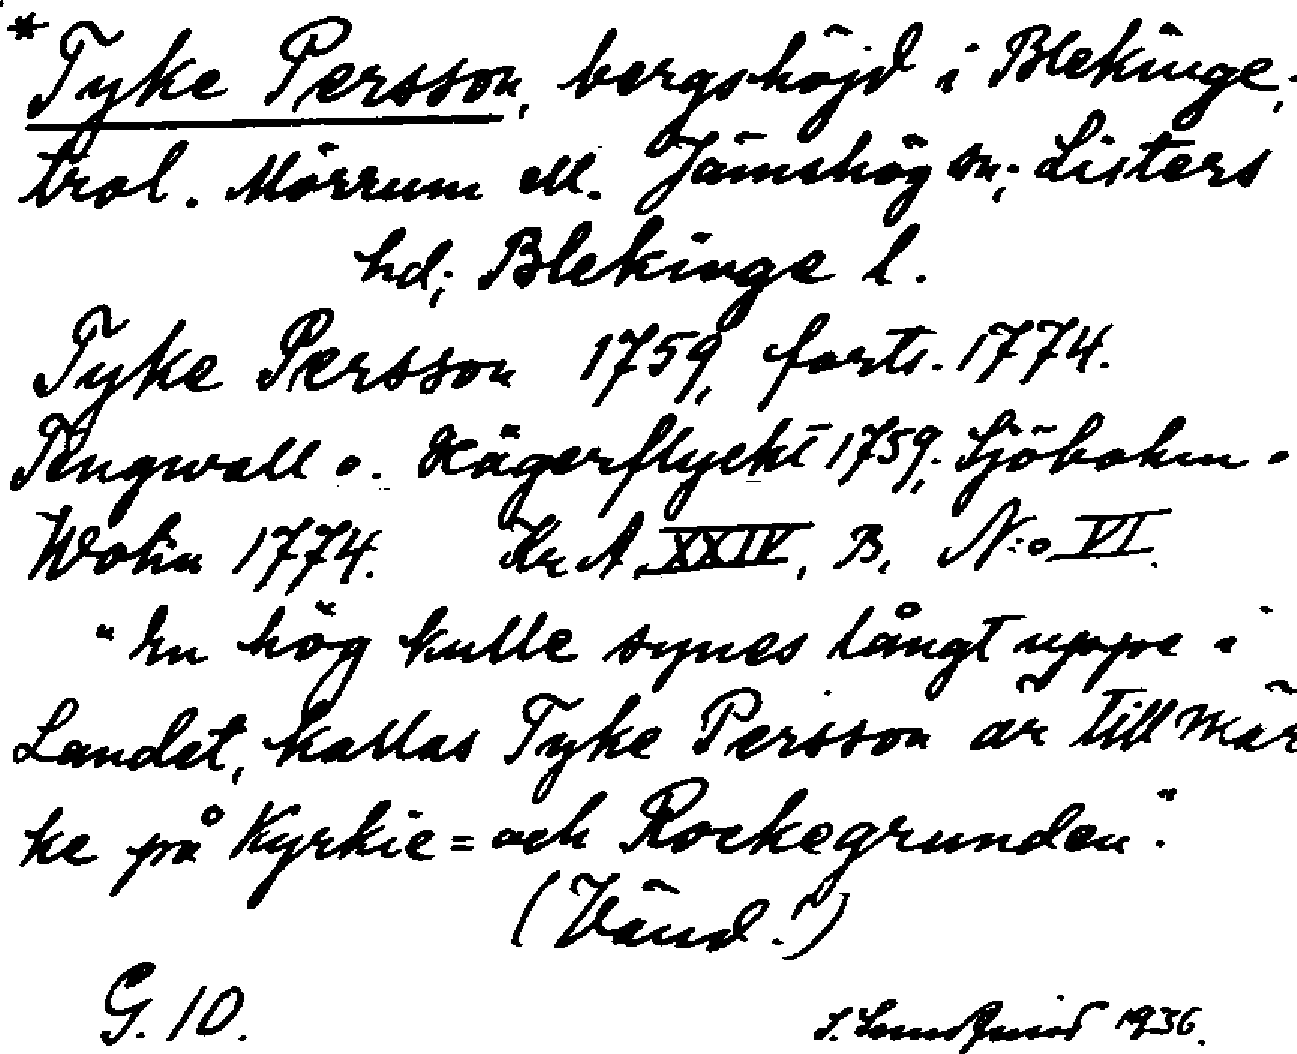 * Tyke Persson, bergshöjd i Blekinge;
trol. Mörrum ell. Jämshög sn; Listers
hd; Blekinge l.
Tyke Persson 1759, forts. 1774.
Tengwall o. Hägerflycht 1759; Sjöbohm o
Wohn 1774. Kr A XXIV, B, N:o VI.
"En hög kulle synes långt uppe i
Landet, kallas Tyke Persson är till mär
ke på Kyrkie= och Rockegrunden".
(Vänd!)
G. 10.
1936.